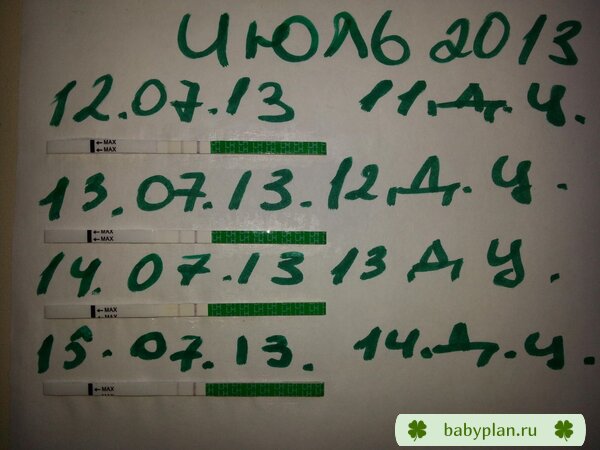 ИЮЛЬ 2013
12.07.13 11.Д.Ц.
←MAX
←MAX
13.07.13. 12.Д.Ц.
←MAX
←MAX
14.07.13 13 Д.Ц.
←MAX
15.07.13. 14.Д.Ц.
←MAX
babyplan.ru